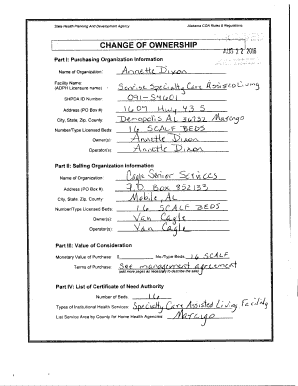 State Health Planning And Development Agency Alabama CON Rules & Regulations
CHANGE OF OWNERSHIP
AUG 12 2016
Part I: Purchasing Organization Information
Name of Organization: Annette Dixon
Facility Name:
(ADPH Licensure name) Service Specialty Care Assisted Living
SHPDA ID Number: 091-S4601
Address (PO Box #) 1607 Hwy 43 S
City, State, Zip, County: Demopolis AL 36732 Marengo
Number/Type Licensed Beds 16 SCALF BEDS
Owner(s): Annette Dixon
Operator(s): Annette Dixon
Part II: Selling Organization Information
Name of Organization: Cagle Senior Services
Address (PO Box #) P.O. Box 852133
City, State, Zip, County: Mobile, AL
Number/Type Licensed Beds: 16 SCALF BEDS
Owner(s): Van Cagle
Operator(s): Van Cagle
Part III: Value of Consideration
Monetary Value of Purchase: $ No./Type Beds 16 SCALF
Terms of Purchase: See management agreement
(add more pages as necessary to describe the sale)
Part IV: List of Certificate of Need Authority
Number of Beds: 16
Types of Institutional Health Services: Specialty Care Assisted Living Facility
List Service Area by County for Home Health Agencies: Marengo